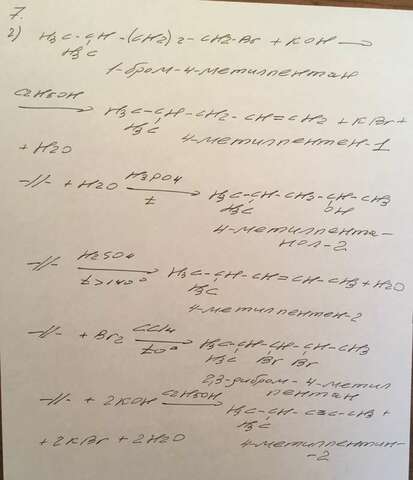 7.
2) H3C-CH-(CH2)2-CH2-Br + KOH ⟶
H3C
1-бром-4-метилпентан
C2H5OH ⟶ H3C-CH-CH2-CH=CH2 + KBr +
H3C
4-метилпентен-1
+ H2O
-//- + H2O H3PO4 ⟶ t H3C-CH-CH2-CH-CH3
H3C OH
4-метилпента-
нол-2
-//- H2SO4 ⟶ t>140° H3C-CH-CH=CH-CH3 + H2O
H3C
4-метилпентен-2
-//- + Br2 CCl4 ⟶ t0° H3C-CH-CH-CH-CH3
H3C Br Br
2,3-дибром-4-метил
пентан
-//- + 2KOH C2H5OH ⟶ H3C-CH-C≡C-CH3 +
H3C
+ 2KBr + 2H2O 4-метилпентин-
-2